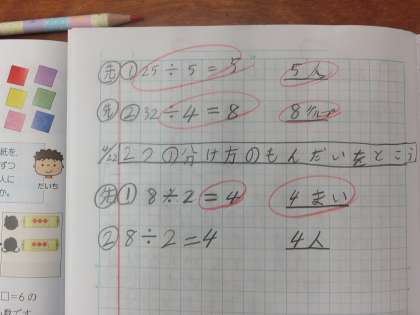 先① 25÷5=5 5人
先② 32÷4=8 8グループ
4/22 2つの分け方のもんだいをとこう
先① 8÷2=4 4まい
② 8÷2=4 4人
紙を、
ずつ
人に
か。
だいち
□=6の